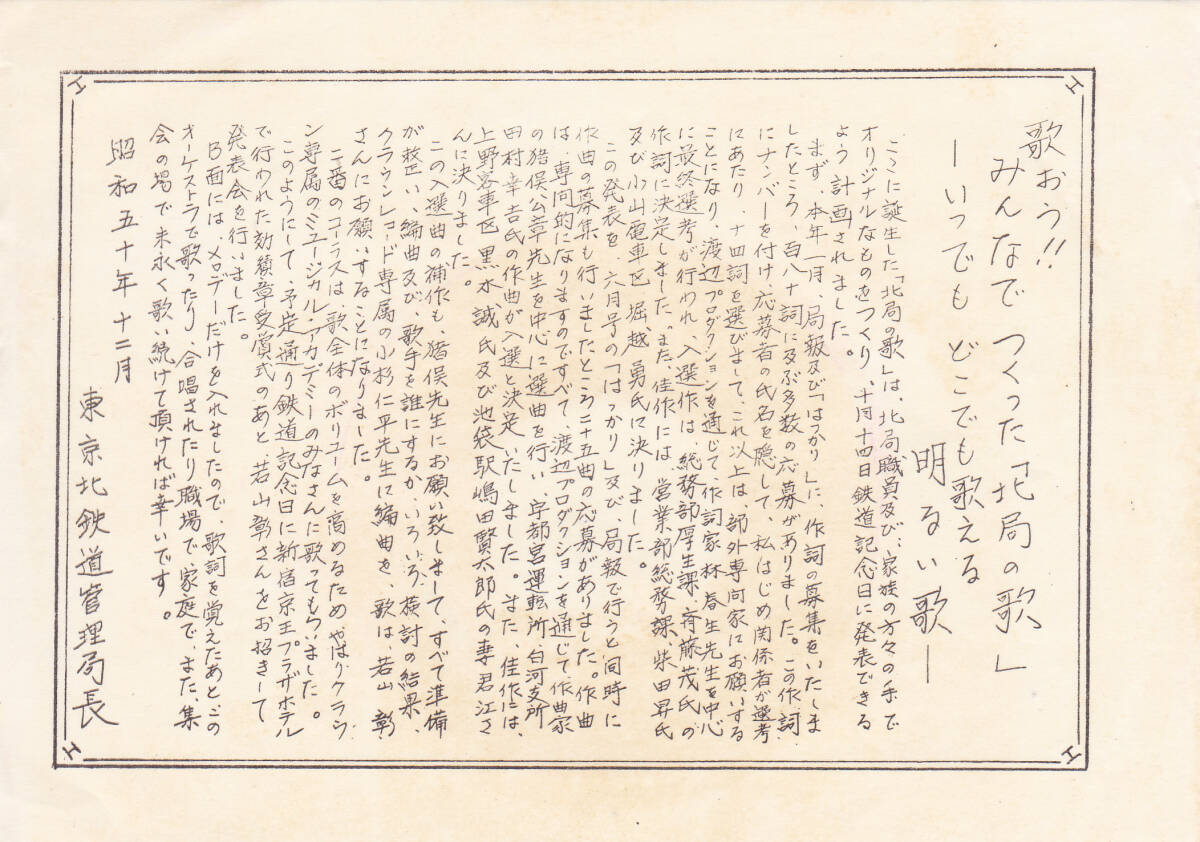 歌おう!!
みんなで つくった「北局の歌」
―いつでも どこでも歌える
明るい歌―
ここに誕生した「北局の歌」は、北局職員及び、家族の方々の手で
オリジナルなものをつくり、十月十四日鉄道記念日に発表できる
よう計画されました。
まず、本年一月、局報及び「はつかり」に、作詞の募集をいたしま
したところ、百八十詞に及ぶ多数の応募がありました。この作詞
にナンバーを付け、応募者の氏名を隠して、私はじめ関係者が選考
にあたり、十四詞を選びまして、これ以上は、部外専向家にお願いする
ことになり、渡辺プロダクションを通じて、作詞家林春生先生を中心
に最終選考が行われ、入選作は、総務部厚生課、斉藤茂氏の
作詞に決定しました。また、佳作には、営業部総務課、柴田昇氏
及び小山電車区堀越勇氏に決りました。
この発表を、六月号の「はつかり」及び、局報で行うと同時に
作曲の募集も行いましたところ二十五曲の応募がありました。作曲
は、専向的になりますのですべて、渡辺プロダクションを通じて、作曲家
の猪俣公章先生を中心に選曲を行い、宇都宮運転所、白河支所
田村幸吉氏の作曲が入選と決定いたしました。また、佳作には、
上野客車区黒水誠氏及び池袋駅嶋田賢太郎氏の妻君江さ
んに決りました。
この入選曲の補作も、猪俣先生にお願い致しまして、すべて準備
が整い、編曲及び、歌手を誰にするか、いろいろ、検討の結果、
クラウンレコード専属の小杉仁平先生に編曲を、歌は、若山彰
さんにお願いすることになりました。
二番のコーラスは、歌全体のボリュームを高めるためやはりクラウ
ン専属のミュージカル・アカデミーのみなさんに歌ってもらいました。
このようにして、予定通り鉄道記念日に新宿京王プラザホテル
で行われた効績章受賞式のあと、若山彰さんをお招きして
発表会を行いました。
B面には、メロデーだけを入れましたので、歌詞を覚えたあとこの
オーケストラで歌ったり、合唱されたり職場で、家庭で、また、集
会の場で末永く歌い続けて頂ければ幸いです。
昭和五十年十二月
東京北鉄道管理局長